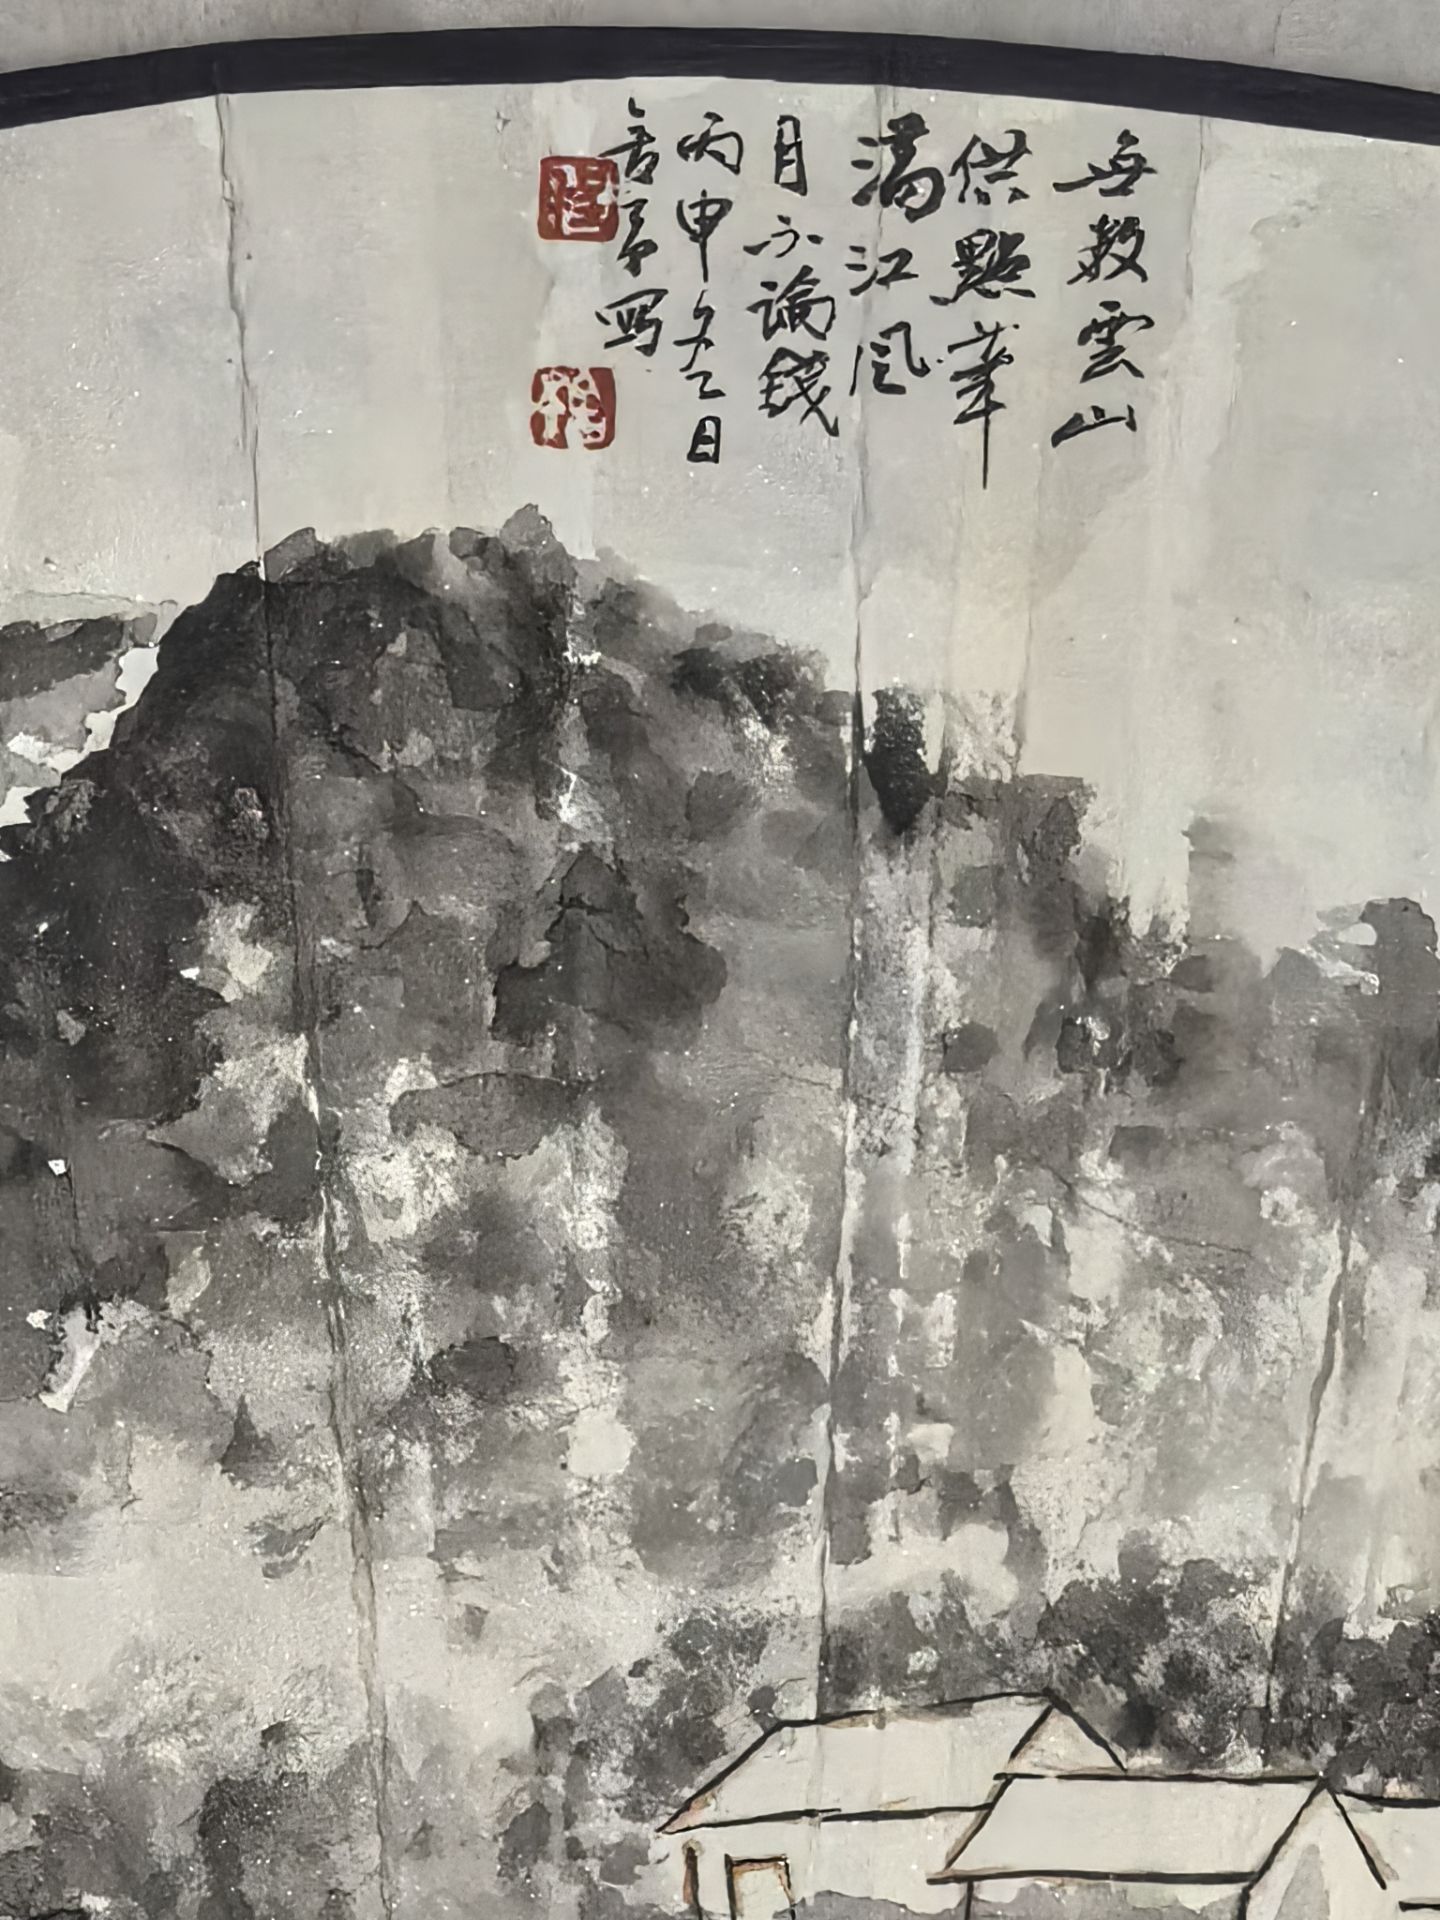 無數雲山
供點筆
滿江風
月不論錢
丙申冬日
言亭写
程